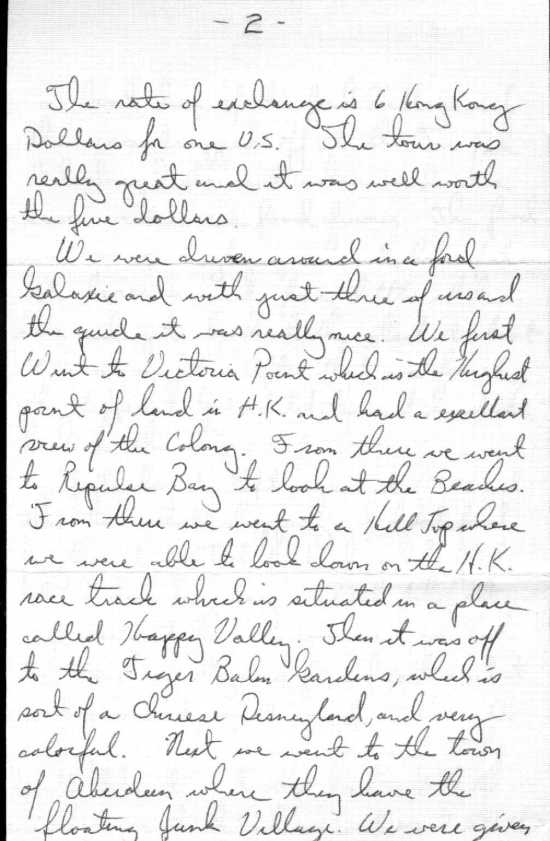 - 2 -
The rate of exchange is 6 Hong Kong
Dollars for one U.S. The tour was
really great and it was well worth
the five dollars.
We were driven around in a ford
Galaxie and with just three of us and
the guide it was really nice. We first
Went to Victoria Point which is the Highest
point of land in H.K. and had a excellant
view of the Colony. From there we went
to Repulse Bay to look at the Beaches.
From there we went to a Hill Top where
we were able to look down on the H.K.
race track which is situated in a place
called Happy Valley. Then it was off
to the Tiger Balm Gardens, which is
sort of a Chinese Disneyland, and very
colorful. Next we went to the town
of Aberdeen where they have the
floating Junk Village. We were given